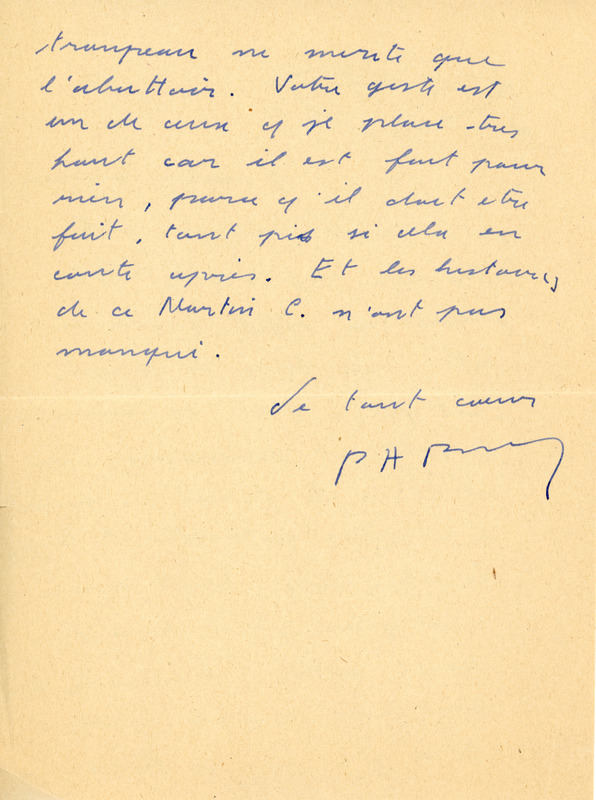 troupeau ne mérite que
l'abattoir. Votre geste est
un de ceux q je place très
haut car il est fait pour
rien, parce q'il doit être
fait, tant pis si cela en
coûte après. Et les histoires
de ce Martin C. n'ont pas
manqué.
De tout coeur
P H